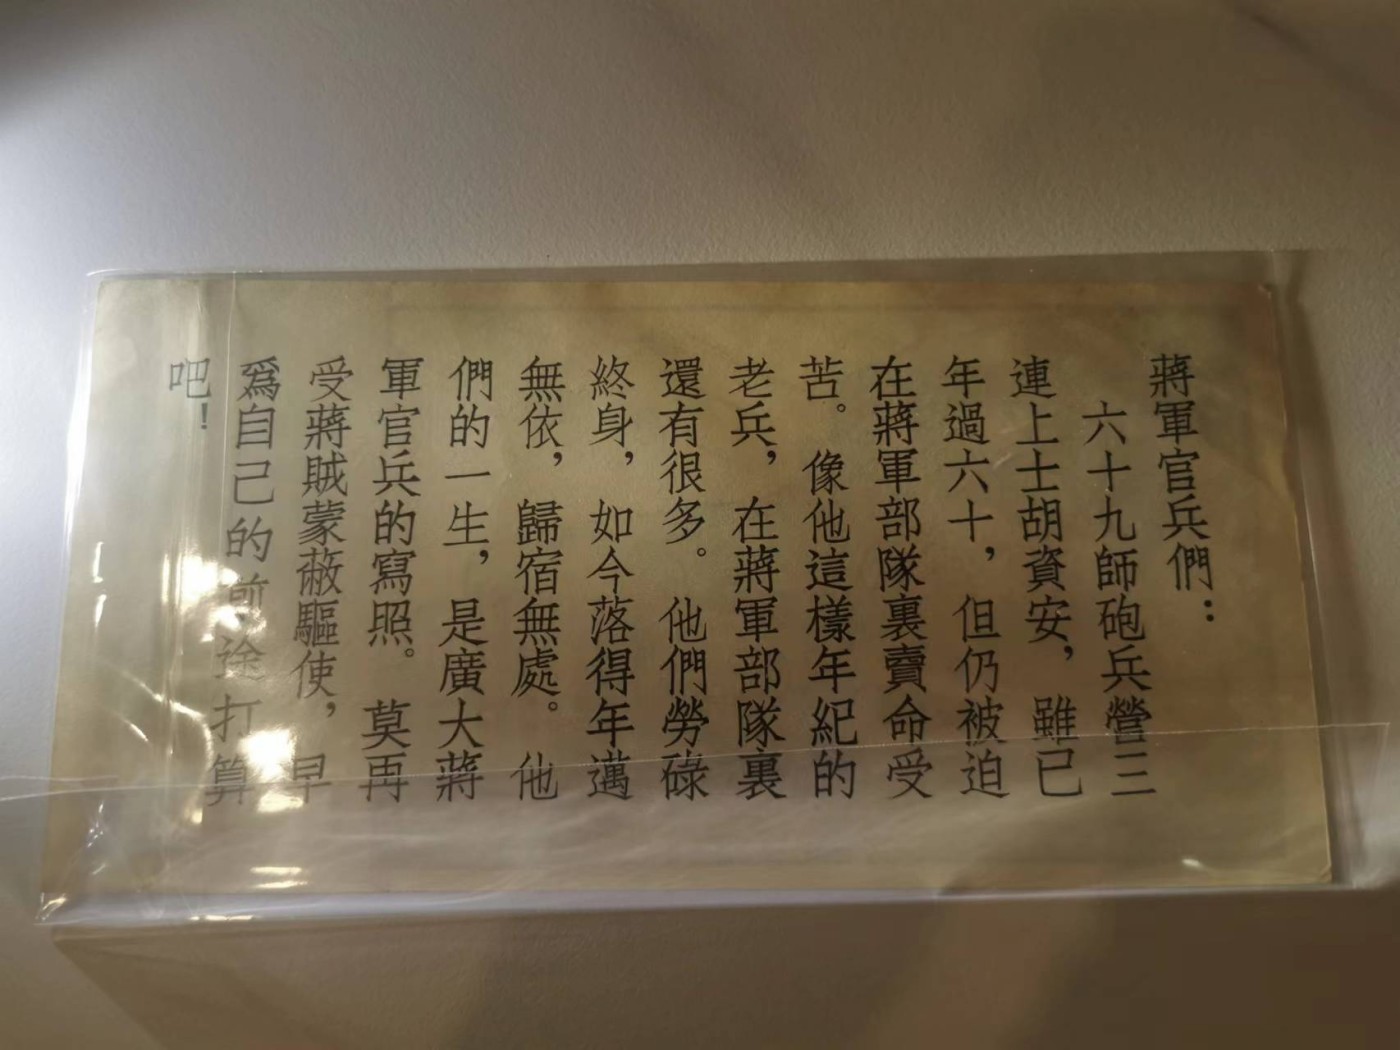 蔣軍官兵們：
六十九師砲兵營三
連上士胡資安，雖已
年過六十，但仍被迫
在蔣軍部隊裏賣命受
苦。像他這樣年紀的
老兵，在蔣軍部隊裏
還有很多。他們勞碌
終身，如今落得年邁
無依，歸宿無處。他
們的一生，是廣大蔣
軍官兵的寫照。莫再
受蔣賊蒙蔽驅使，早
爲自己的前途打算
吧！